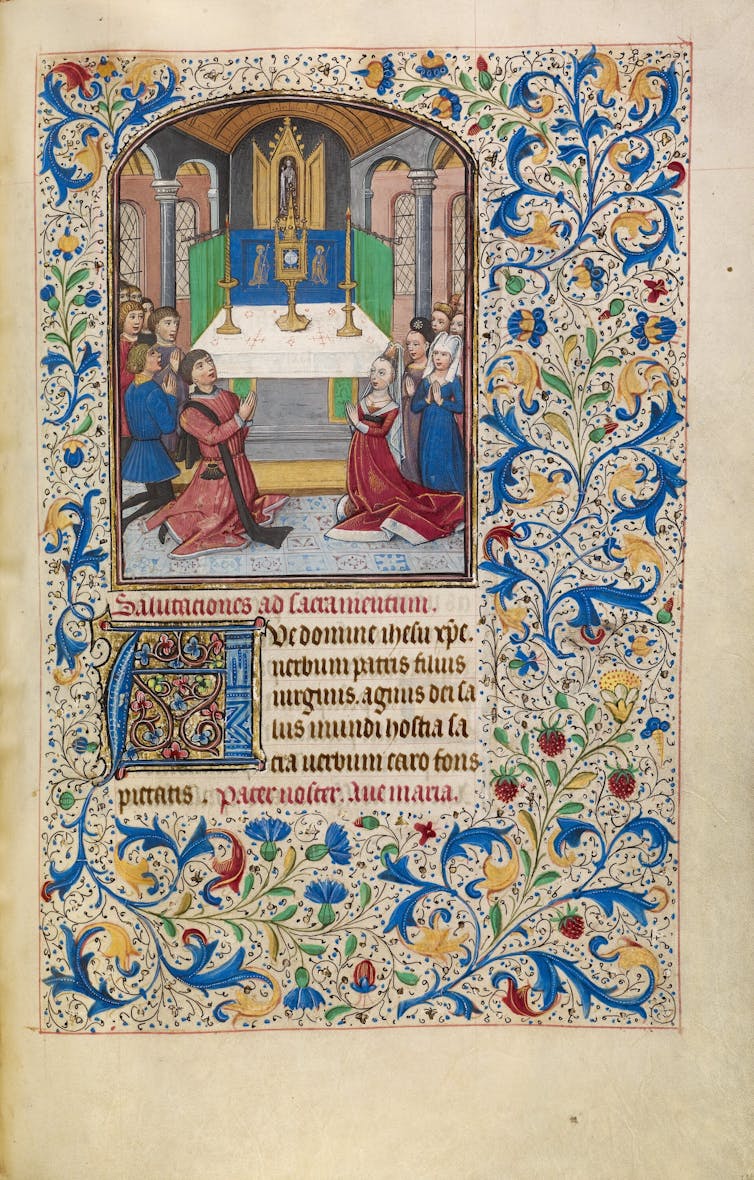 Salutaciones ad sacramentum.
AVe domine ihesu xp̄e.
uerbum patris filius
uirginis. agnus dei sa
lus mundi hostia sa
cra uerbum caro fons
pietatis. Pater noster. Aue maria.